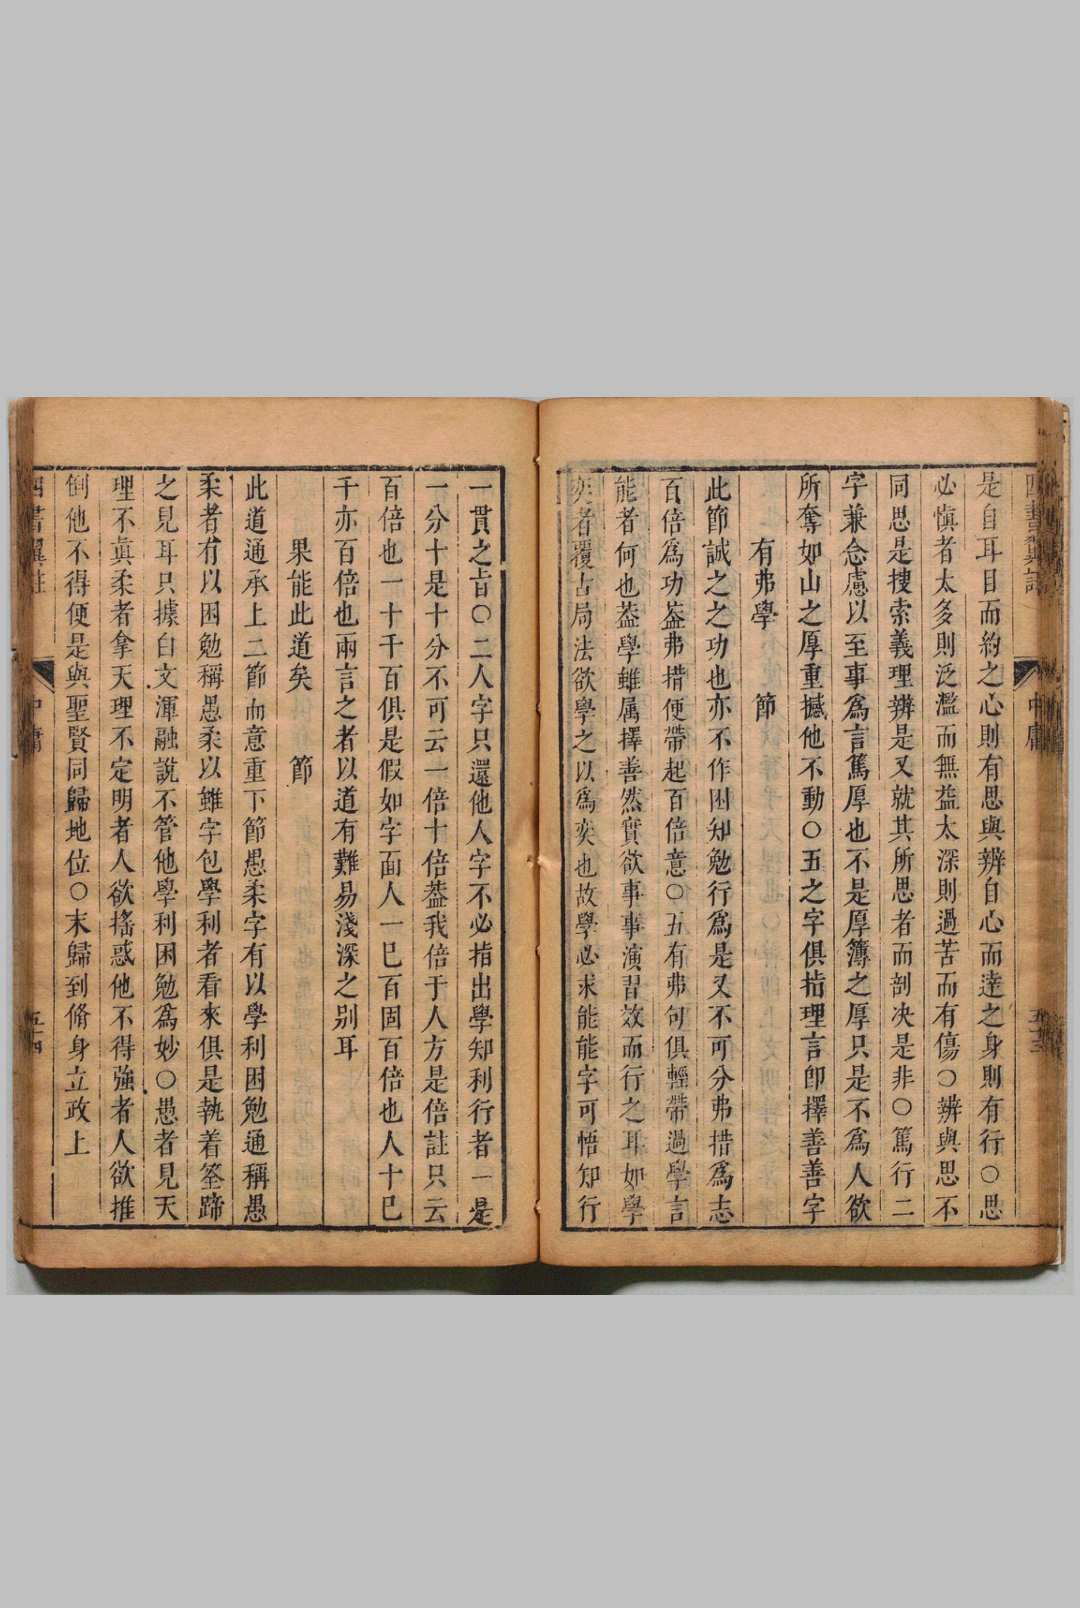 是自耳目而約之心則有思與辨自心而達之身則有行○思
必慎者太多則泛濫而無益太深則過苦而有傷○辨與思不
同思是搜索義理辨是又就其所思者而剖决是非○篤行二
字兼念慮以至事為言篤厚也不是厚簿之厚只是不為人欲
所奪如山之厚重撼他不動○五之字俱指理言卽擇善善字
有弗學 節
此節誠之之功也亦不作困知勉行為是又不可分弗措為志
百倍為功葢弗措便帶起百倍意○五有弗句俱輕帶過學言
能者何也葢學雖属擇善然實欲事事演習效而行之耳如學
奕者覆古局法欲學之以為奕也故學必求能能字可悟知行
一貫之㫖○二人字只還他人字不必指出學知利行者一是
一分十是十分不可云一倍十倍葢我倍于人方是倍註只云
百倍也一十千百俱是假如字面人一巳百固百倍也人十巳
千亦百倍也兩言之者以道有難易淺深之别耳
果能此道矣 節
此道通承上二節而意重下節愚柔字有以學利困勉通稱愚
柔者有以困勉稱愚柔以雖字包學利者看來俱是執着筌蹄
之見耳只據白文渾融說不管他學利困勉為妙○愚者見天
理不眞柔者拿天理不定明者人欲搖惑他不得強者人欲推
倒他不得便是與聖賢同歸地位○末歸到脩身立政上
四書翼註
中庸
五十四